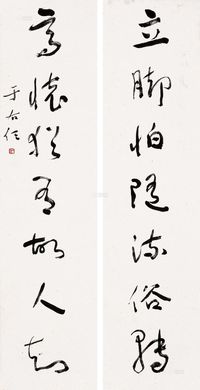 立脚怕随流俗转
高怀犹有故人知
于右任